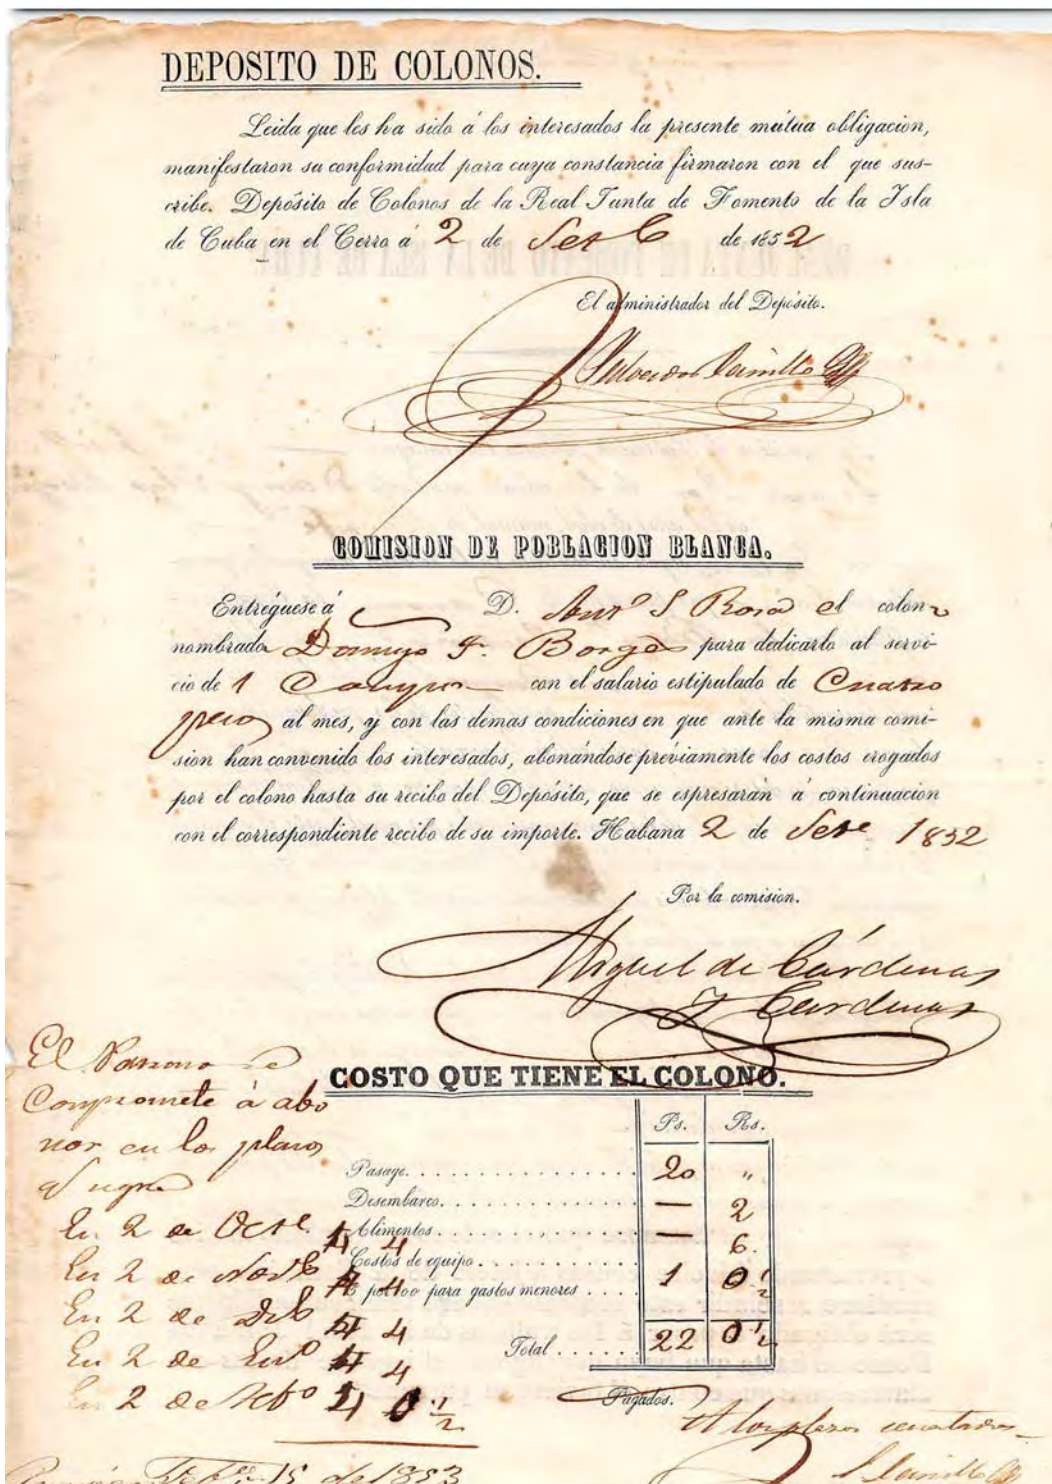 DEPOSITO DE COLONOS.
Leida que les ha sido á los interesados la presente mútua obligacion,
manifestaron su conformidad para cuya constancia firmaron con el que sus-
cribe. Depósito de Colonos de la Real Junta de Fomento de la Isla
de Cuba en el Cerro á 2 de Set de 1852
El administrador del Depósito.
COMISION DE POBLACION BLANCA.
Entréguese á D. Antº S Rosa el colono
nombrado Domingo F. Borges para dedicarlo al servi-
cio de 1 Campo con el salario estipulado de Cuatro
pesos al mes, y con las demas condiciones en que ante la misma comi-
sion han convenido los interesados, abonándose préviamente los costos erogados
por el colono hasta su recibo del Depósito, que se espresarán á continuacion
con el correspondiente recibo de su importe. Habana 2 de Sete 1852
Por la comision.
Miguel de Cárdenas
y Cárdenas
El Patrono se
Compromete à abo
nar en los plazos
COSTO QUE TIENE EL COLONO.
Ps. Rs.
Pasage 20 "
Desembarco — 2
Alimentos — 6.
Costos de equipo
para gastos menores 1 0 ½
Total 22 0 ½
En 2 de Octe. 4 4
En 2 de Novb 4 4
En 2 de Dcb 4 4
En 2 de Enº 4 4
En 2 de Febº 0 ½
Pagados.
A los plazos
15 de 1853